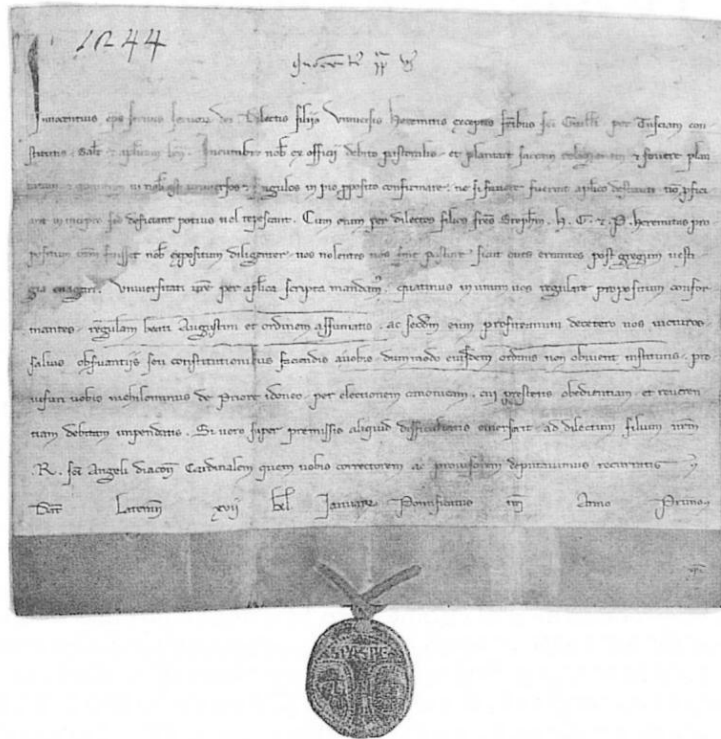 1244
Innocentius eps servus servorum dei Dilectis filijs Universis Heremitis exceptis fribus sci Guilli per Tusciam con
stitutis salt & aplicam ben. Incumbit nob ex officij debito pastoralis et plantare sacram religionem & fovere plan
tatam & quantum in nob est universos & singulos in pio pposito confirmare ne si fuerint aplico destituti
in incepto sed deficiant potius vel tepescant. Cum enim per dilectos filios fres Stephm. H. G. & P. Heremitas pro
positum vrm fuisset nob expositum diligenter nos nolentes vos sine pastore sicut oves errantes post gregum vesti
gia evagari. Universitati vre per aplica scripta mandam quatinus in unum vos regulare propositum confor
mantes regulam beati Augustini et ordinem assumatis ac secdm eum profiteamini decetero vos victuros
salvis obsvantijs seu constitutionibus faciendis avobis dummodo eiusdem ordinis non obvient institutis pro
visuri vobis nichilominus de Priore idoneo per electionem canonicam cui prestetis obedientiam et reveren
tiam debitam impendatis. Si vero super premissis aliquid difficultatis emerserit ad dilectum filium nrm
.R. sci Angeli diacon Cardinalem quem vobis correctorem ac provisorem deputavimus recurratis
Dat Laterani xvij kl Januarij Pontificatus nri Anno Primo
SPASPE